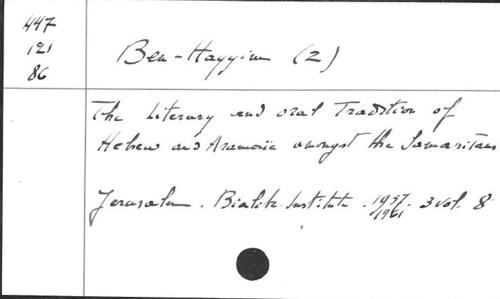 447
121
86
Ben-Hayyim (Z)
The Literary and oral Tradition of
Hebrew and Aramaic amongst the Samaritans
Jerusalem. Bialik Institute. 1957/1961. 3 vol. 8°